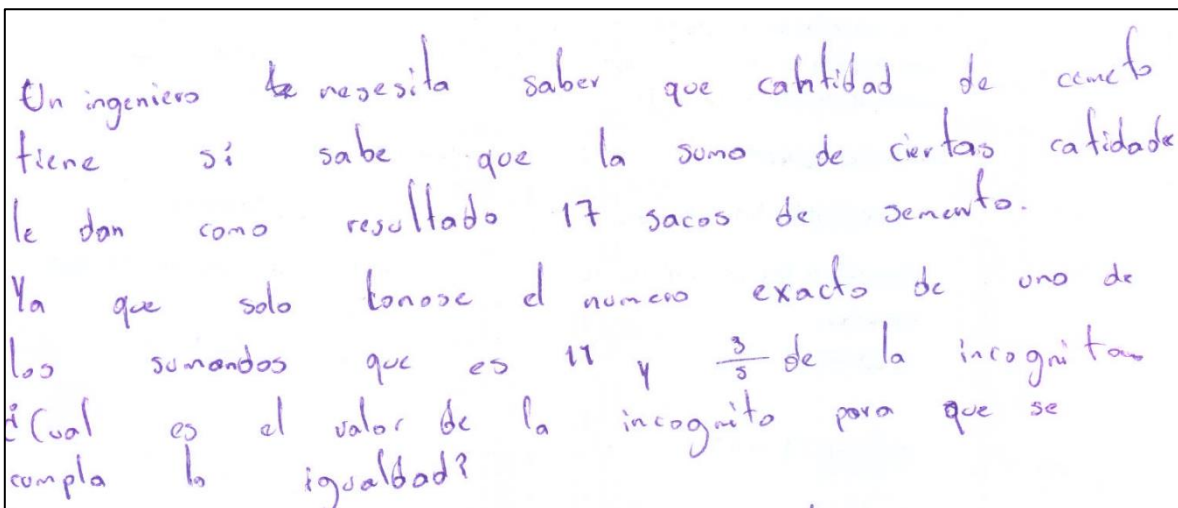 Un ingeniero nesesita saber que cantidad de cemeto
tiene sí sabe que la suma de ciertas catidade
le dan como resultado 17 sacos de semento.
Ya que solo conose el numero exacto de uno de
los sumandos que es 11 y 3/5 de la incognita
¿Cual es el valor de la incognito para que se
cumpla la igualdad?